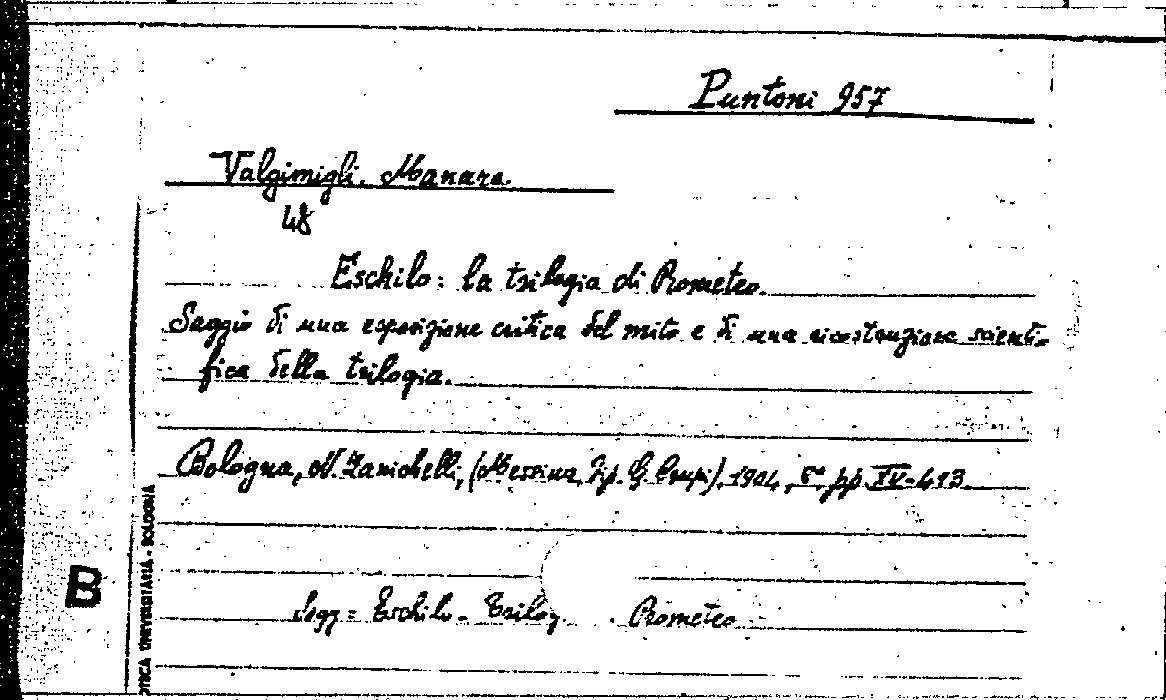 Puntoni 957
Valgimigli, Manara.
48
Eschilo: la trilogia di Prometeo.
Saggio di una esposizione critica del mito e di una ricostruzione scienti-
fica della trilogia.
Bologna, N. Zanichelli, (Messina, Tip. G. Crupi), 1904, 8° pp. IV-413.
Sogg = Eschilo - Trilog Prometeo
B
OTECA UNIVERSITARIA - BOLOGNA